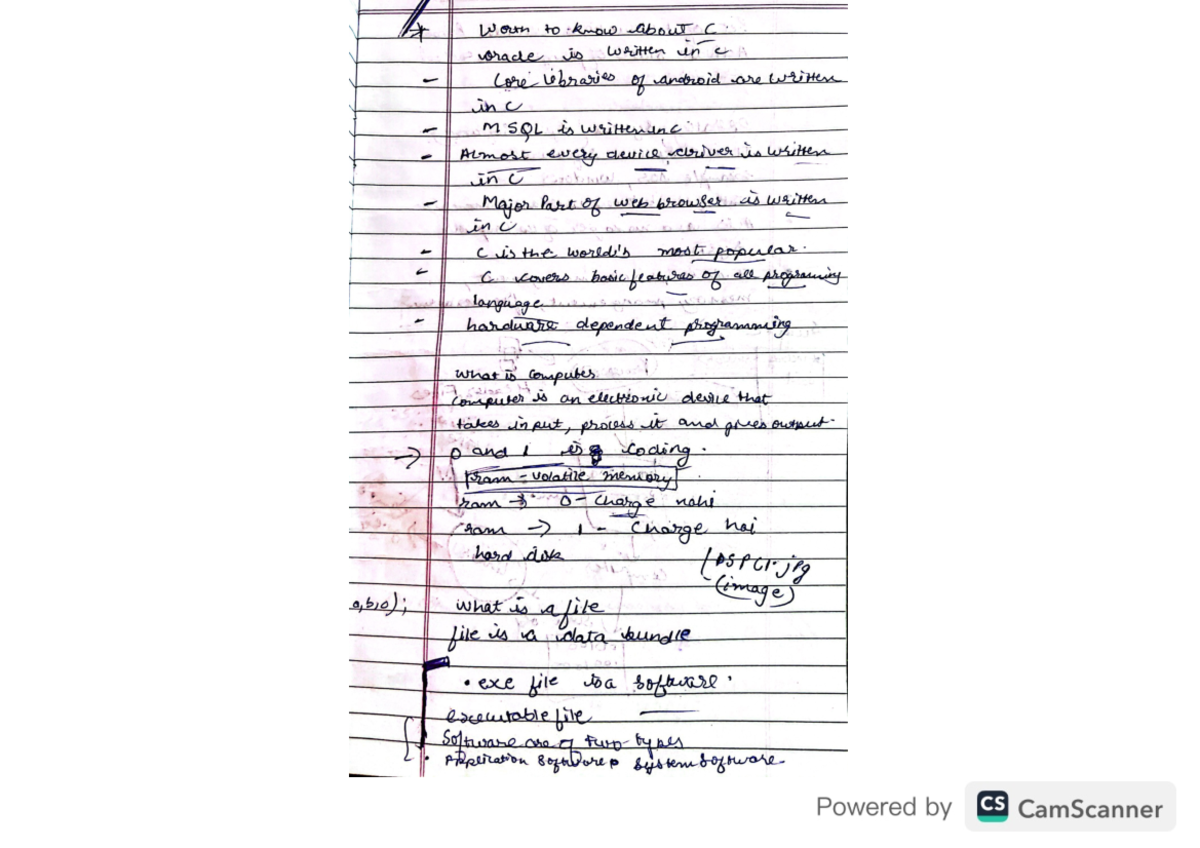 * Worth to know about C
oracle is written in c
- Core libraries of android are written
in C
- MSQL is written in c.
- Almost every device driver is written
in C
- Major Part of web browser is written
in C
- C is the world's most popular.
- C covers basic features of all programing
language
- hardware dependent programming
what is computer
computer is an electronic device that
takes input, process it and gives output.
→ 0 and 1 is coding.
ram = volatile memory
ram → 0 - Charge nahi
ram → 1 - Charge hai
hard disk
DSPC1.jpg
(image)
a,b,0);
what is a file
file is a data bundle
• exe file is a software.
executable file
Software are of two types
• Application Software System Software
Powered by CS CamScanner